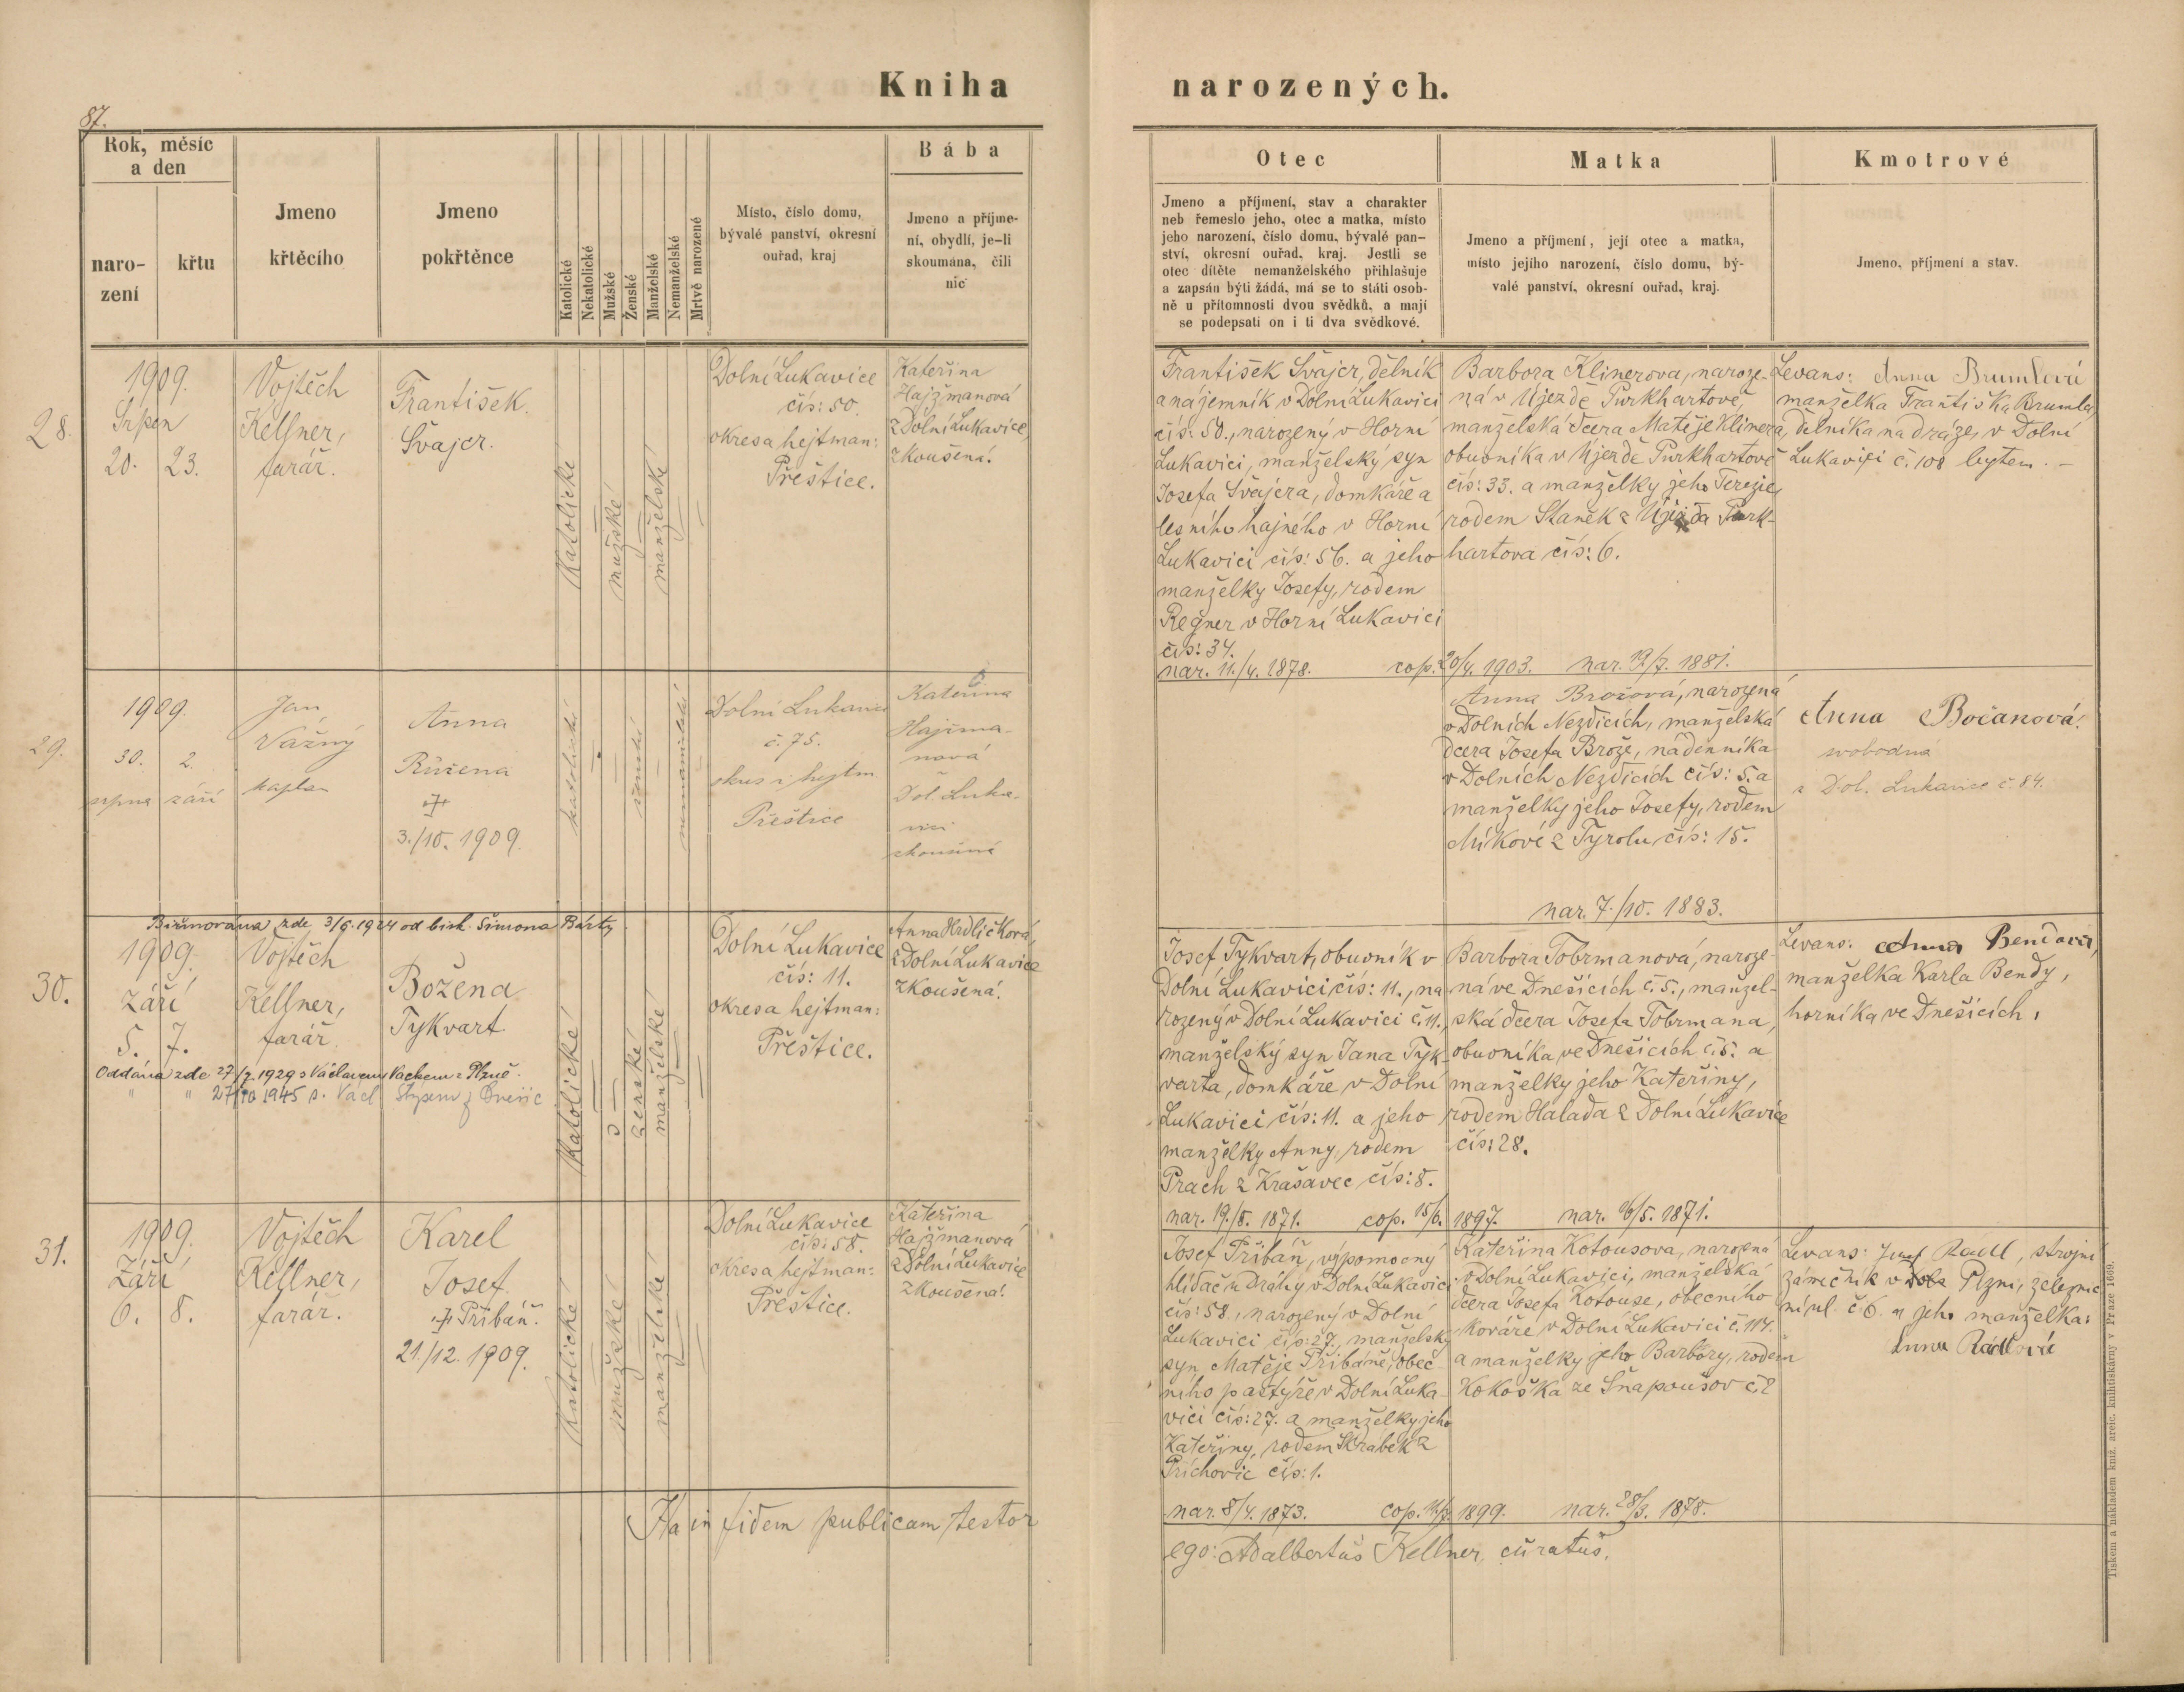 Kniha narozených.
87.
Rok, měsíc
a den
naro-
zení
křtu
Jmeno
křtěcího
Jmeno
pokřtěnce
Katolické
Nekatolické
Mužské
Ženské
Manželské
Nemanželské
Mrtvě narozené
Místo, číslo domu,
bývalé panství, okresní
ouřad, kraj
Bába
Jmeno a příjme-
ní, obydlí, je-li
skoumána, čili
nic
Otec
Jmeno a příjmení, stav a charakter
neb řemeslo jeho, otec a matka, místo
jeho narození, číslo domu, bývalé pan-
ství, okresní ouřad, kraj. Jestli se
otec dítěte nemanželského přihlašuje
a zapsán býti žádá, má se to státi osob-
ně u přítomnosti dvou svědků, a mají
se podepsati on i ti dva svědkové.
Matka
Jmeno a příjmení, její otec a matka,
místo jejího narození, číslo domu, bý-
valé panství, okresní ouřad, kraj.
Kmotrové
Jmeno, příjmení a stav.
28.
1909.
Srpen
20. 23.
Vojtěch
Kellner,
farář.
František.
Švajcr.
Katolické
mužské
manželské
Dolní Lukavice
čís: 50.
okres a hejtman:
Přeštice.
Kateřina
Hajžmanová
z Dolní Lukavice,
zkoušená.
František Švajcr, dělník
a nájemník v Dolní Lukavici
čís: 50., narozený v Horní
Lukavici, manželský syn
Josefa Švajcra, domkáře a
lesního hajného v Horní
Lukavici čís: 56. a jeho
manželky Josefy, rodem
Regner v Horní Lukavici
čís: 34.
nar. 11./4. 1878.
cop. 20/4. 1903.
Barbora Klinerova, naroze-
ná v Újezdě Purkhartově,
manželská dcera Matěje Klinera,
obuvníka v Újezdě Purkhartově
čís: 33. a manželky jeho Terezie,
rodem Staněk z Újezda Purk-
hartova čís: 6.
nar. 19/7. 1881.
Levans: Anna Brumlová
manželka Františka Brumla,
dělníka na dráze, v Dolní
Lukavici č. 108 bytem. –
29.
1909.
30. 2.
srpna září
Jan
Vážný
kaplan
Anna
Růžena
3./10. 1909.
katolické
ženské
nemanželské
Dolní Lukavice
č. 75.
okres i hejtm.
Přeštice
Kateřina
Hajžma-
nová
Dol. Luka-
vici
zkoušená
Anna Brožová, narozená
v Dolních Nezdicích, manželská
dcera Josefa Brože, nádenníka
v Dolních Nezdicích čís: 5. a
manželky jeho Josefy, rodem
Míkové z Tyrolu čís: 15.
nar. 7./10. 1883.
Anna Bočanová.
svobodná
z Dol. Lukavice č. 84.
Biřmována zde 3/6. 1924 od bisk. Šimona Bárty
30.
1909.
Září
5. 7.
Vojtěch
Kellner,
farář.
Božena
Tykvart
Oddána zde 27/7. 1929 s Václavem Vachem z Plzně.
" " 27/10 1945 s. Václ
Katolické
ženské
manželské
Dolní Lukavice
čís: 11.
okres a hejtman:
Přeštice.
Anna Hrdličková,
z Dolní Lukavice
zkoušená.
Josef Tykvart, obuvník v
Dolní Lukavici čís: 11., na
rozený v Dolní Lukavici č. 11.,
manželský syn Jana Tyk-
varta, domkáře v Dolní
Lukavici čís: 11. a jeho
manželky Anny, rodem
Prach z Krasavec čís: 8.
nar. 19./8. 1871.
cop. 15/6. 1897.
Barbora Tobrmanová, naroze-
ná ve Dnešicích č. 5., manžel-
ská dcera Josefa Tobrmana,
obuvníka ve Dnešicích č. 5. a
manželky jeho Kateřiny,
rodem Halada z Dolní Lukavice
čís: 28.
nar. 16/5. 1871.
Levans: Anna Bendová,
manželka Karla Bendy,
horníka ve Dnešicích.
31.
1909.
Září
6. 8.
Vojtěch
Kellner,
farář.
Karel
Josef
Přibáň.
21./12. 1909.
Katolické
mužské
manželské
Dolní Lukavice
čís: 58.
okres a hejtman:
Přeštice.
Kateřina
Hajžmanová
z Dolní Lukavice
zkoušená.
Josef Přibáň, výpomocný
hlídač u dráhy v Dolní Lukavici
čís: 58., narozený v Dolní
Lukavici čís: 27. manželský
syn Matěje Přibáně, obec
ního pastýře v Dolní Luka
vici čís: 27. a manželky jeho
Kateřiny, rodem Skrabek z
Příchovic čís: 1.
nar. 8/4. 1873.
cop. 1899.
Kateřina Kotousova, narozená
v Dolní Lukavici, manželská
dcera Josefa Kotouse, obecního
kováře v Dolní Lukavici č. 114.
a manželky jeho Barbory, rodem
Kokoška ze Šnapoušov č. 2
nar. 28/3. 1878.
Levans: Josef Rádl, strojní
zámečník v Plzni, železnič
ní ul. č 6. a jeho manželka:
Anna Rádlová
Ita in fidem publicam testor
ego: Adalbertus Kellner, curatus.
Tiskem a nákladem kníž. arcib. knihtiskárny v Praze 1669.